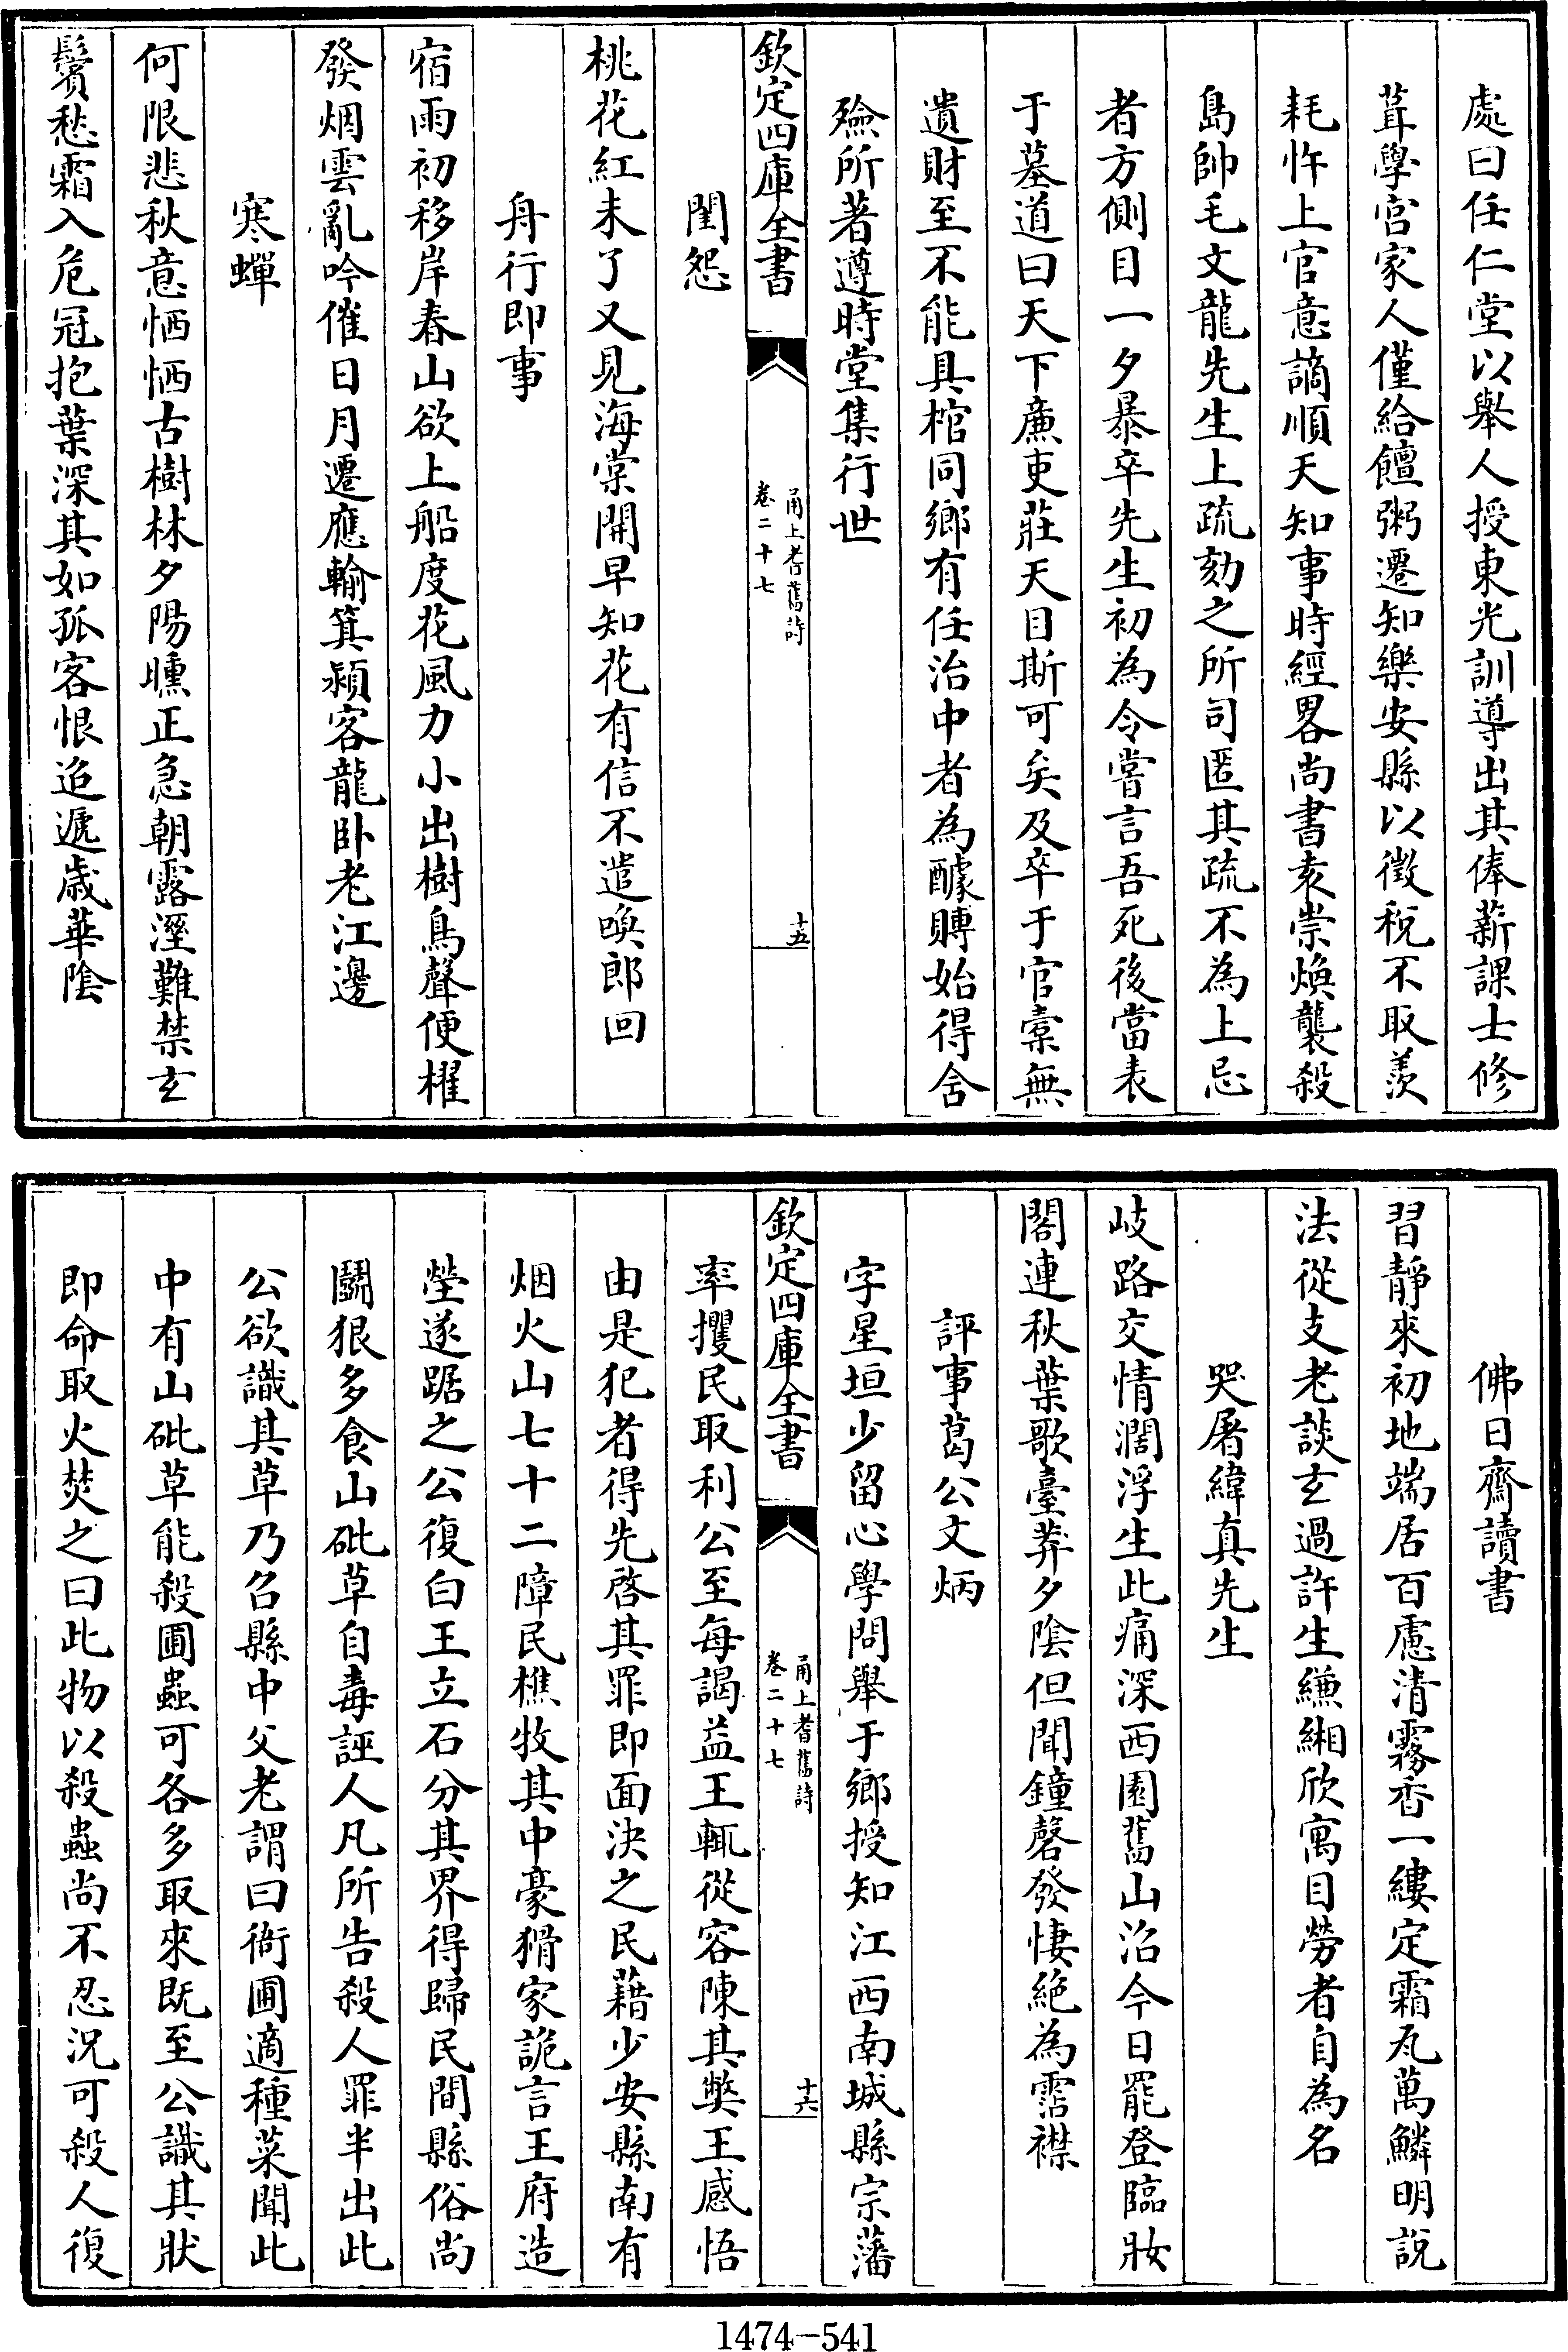 處曰任仁堂以舉人授東光訓導出其俸薪課士修
葺學宮家人僅給饘粥遷知樂安縣以徵稅不取羨
耗忤上官意謫順天知事時經畧尚書袁崇煥襲殺
島帥毛文龍先生上疏劾之所司匿其疏不為上忌
者方側目一夕暴卒先生初為令嘗言吾死後當表
于墓道曰天下廉吏莊天目斯可矣及卒于官橐無
遺財至不能具棺同鄉有任治中者為醵賻始得含
殮所著遵時堂集行世
欽定四庫全書
甬上耆舊詩
卷二十七
十五
閨怨
桃花紅未了又見海棠開早知花有信不遣喚郎回
舟行即事
宿雨初移岸春山欲上船度花風力小出樹鳥聲便櫂
發烟雲亂吟催日月遷應輸箕潁客龍卧老江邊
寒蟬
何限悲秋意恓恓古樹林夕陽曛正急朝露溼難禁玄
鬢愁霜入危冠抱葉深其如孤客恨迢遞歲華陰
佛日齋讀書
習靜來初地端居百慮清霧香一縷定霜瓦萬鱗明說
法從支老談玄過許生縑緗欣寓目勞者自為名
哭屠緯真先生
岐路交情濶浮生此痛深西園舊山沿今日罷登臨妝
閣連秋葉歌臺莽夕陰但聞鐘磬發悽絶為霑襟
評事葛公文炳
字星垣少留心學問舉于鄉授知江西南城縣宗藩
欽定四庫全書
甬上耆舊詩
卷二十七
十六
率攫民取利公至每謁益王輒從容陳其獘王感悟
由是犯者得先啓其罪即面決之民藉少安縣南有
烟火山七十二障民樵牧其中豪猾家詭言王府造
塋遂踞之公復白王立石分其界得歸民間縣俗尚
鬭狠多食山砒草自毒誣人凡所告殺人罪半出此
公欲識其草乃召縣中父老謂曰衙圃適種菜聞此
中有山砒草能殺圃蟲可各多取來既至公識其狀
即命取火焚之曰此物以殺蟲尚不忍況可殺人復
1474-541